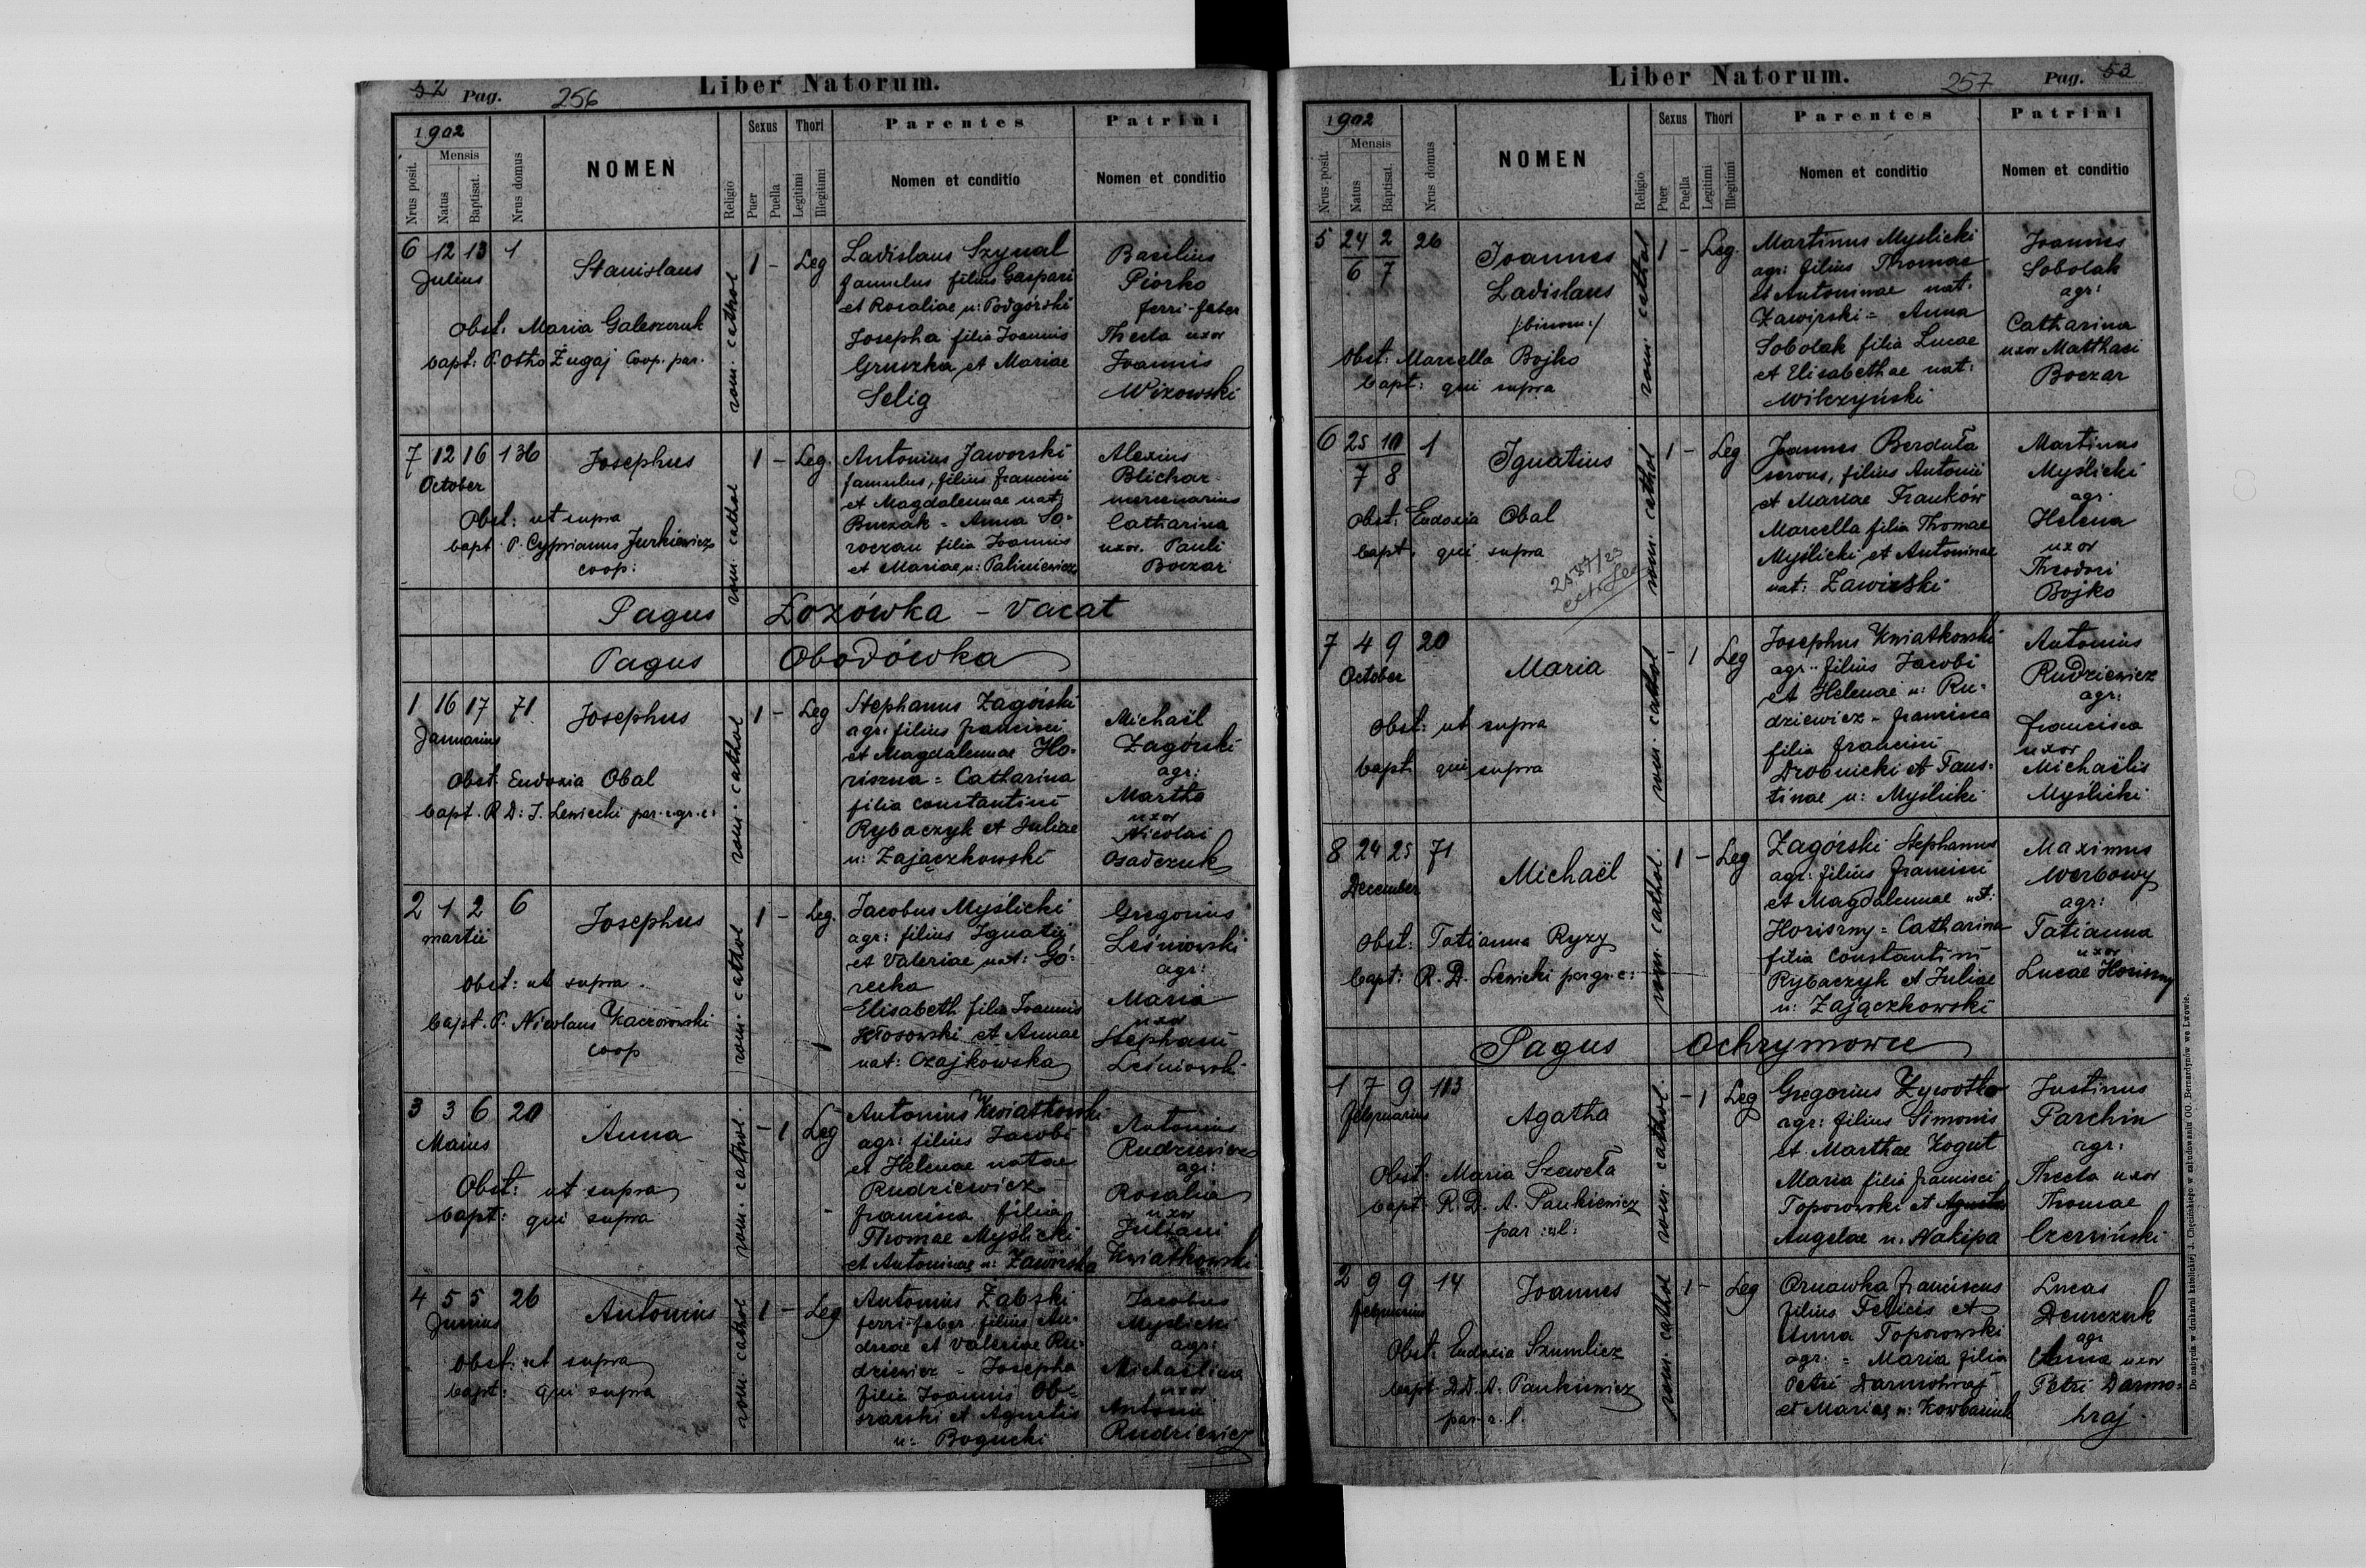 52 Pag. 256 Liber Natorum.
1902
Nrus posit.
Mensis
Natus
Baptisat.
Nrus domus
NOMEN
Religio
Sexus
Puer
Puella
Thori
Legitimi
Illegitimi
Parentes
Nomen et conditio
Patrini
Nomen et conditio
6 12 13 1
Julius
Stanislaus
Obst: Maria
bapt: P. Otho Żugaj Coop. par.
rom. cathol
1 - Leg
Ladislaus Szynal
famulus filius Gaspari
et Rosaliae n: Podgórski
Josepha filia Joannis
Gruszka et Mariae
Selig
Basilius
Piorko
ferri-faber
Thecla uxor
Joannis
Wizowski
7 12 16 136
October
Josephus
Obst: ut supra
bapt. P. Cyprianus Jurkiewicz
coop:
rom. cathol
1 - Leg.
Antonius Jaworski
famulus, filius Francisci
et Magdalennae nat:
Burzak - Anna So-
roczan filia Joannis
et Mariae n: Paliniewicz
Alexius
Blichar
mercenarius
Catharina
uxor. Pauli
Boczar
Pagus Łozówka - Vacat
Pagus Obodówka
1 16 17 71
Januarius
Josephus
Obst. Eudoxia Obal
bapt. R D: J. Lewicki par. gr. c:
rom. cathol
1 - Leg
Stephanus Zagórski
agr: filius Francisci
et Magdalennae Ho-
riszna = Catharina
filia Constantini
Rybaczyk et Juliae
n: Zajączkowski
Michaël
Zagórski
agr:
Martha
uxor
Nicolai
Osadczuk
2 1 2 6
martii
Josephus
Obst: ut supra.
bapt. P. Nicolaus Kaczorowski
coop
rom. cathol
1 - Leg.
Jacobus Myślicki
agr: filius Ignatii
et Valeriae nat: Gó-
recka
Elisabeth filia Joannis
Kłosowski et Annae
nat: Czajkowska
Gregorius
Leśniowski
agr:
Maria
uxor
Stephani
Leśniowski
3 3 6 20
Maius
Anna
Obst: ut supra
bapt: qui supra
rom. cathol.
- 1 Leg
Antonius Kwiatkowski
agr: filius Jacobi
et Helenae natae
Rudziewicz -
Francisca filia
Thomae Myślicki
et Antoninae n: Zawirska
Antonius
Rudziewicz
agr:
Rosalia
uxor
Juliani
Kwiatkowski
4 5 5 26
Junius
Antonius
Obst: ut supra
bapt: qui supra
rom. cathol
1 - Leg
Antonius Żabski
ferri-faber filius An-
dreae et Valeriae Ru-
dziewicz - Josepha
filia Joannis Ob-
szarski et Agnetis
n: Bogucki
Jacobus
Myślicki
agr:
Michaëlina
uxor
Antonii
Rudziewicz
Liber Natorum. 257 Pag. 53
1902
Nrus posit.
Mensis
Natus
Baptisat.
Nrus domus
NOMEN
Religio
Sexus
Puer
Puella
Thori
Legitimi
Illegitimi
Parentes
Nomen et conditio
Patrini
Nomen et conditio
5 24/6 2/7 26
Joannes
Ladislaus
/:binom:/
Obst: Marcella Bojko
bapt: qui supra
rom. cathol
1 - Leg.
Martinus Myślicki
agr: filius Thomae
et Antoninae nat.
Zawirski = Anna
Sobolak filia Lucae
et Elisabethae nat:
Wilczyński
Joannes
Sobolak
agr:
Catharina
uxor Matthaei
Boczar
6 25/7 10/8 1
Ignatius
Obst: Eudoxia Obal
bapt. qui supra
rom. cathol
1 - Leg
Joannes Berduła
servus, filius Antonii
et Mariae Franków
Marcella filia Thomae
Myślicki et Antoninae
nat: Zawirski
Martinus
Myślicki
agr.
Helena
uxor
Theodori
Bojko
7 4 9 20
October
Maria
Obst: ut supra
bapt. qui supra
rom. cathol
- 1 Leg
Josephus Kwiatkowski
agr.. filius Jacobi
et Helenae n: Ru-
dziewicz - Francisca
filia Francisci
Drobnicki et Faus-
tinae n: Myślicki
Antonius
Rudziewicz
agr:
Francisca
uxor
Michaëlis
Myślicki
8 24 25 71
December
Michaël
Obst: Tatianna Ryzy
bapt: R. D. Lewicki par gr. c:
rom. cathol.
1 - Leg
Zagórski Stephanus
agr: filius Francisci
et Magdalennae nat:
Horiszny = Catharina
filia Constantini
Rybaczyk et Juliae
n: Zajączkowski
Maximus
Werbowy
agr:
Tatianna
uxor
Lucae Horiszny
Pagus Ochrymowce
1 7 9 103
Februarius
Agatha
Obst: Maria Szaweła
bapt: R. D. A. Pankiewicz
par. r. l:
rom. cathol.
- 1 Leg
Gregorius Żywotko
agr: filius Simonis
et Marthae Kogut
Maria filia Francisci
Toporowski et
Angelae n: Nakipa
Justinus
Parchin
agr:
Thecla uxor
Thomae
2 9 9 14
Februarius
Joannes
Obst: Eudoxia
bapt. D. D. A. Pankiewicz
par. r. l.
rom. cathol
1 - Leg
Czuawka Franciscus
filius Felicis et
Anna Toporowski
agr. = Maria filia
Petri Darmohraj
et Mariae n: Kowbaniuk
Lucas
Demczuk
agr
Anna uxor
Petri Darmo-
hraj
Do nabycia w drukarni katolickiej J. Chęcińskiego w zabudowaniu OO. Bernardynów we Lwowie.